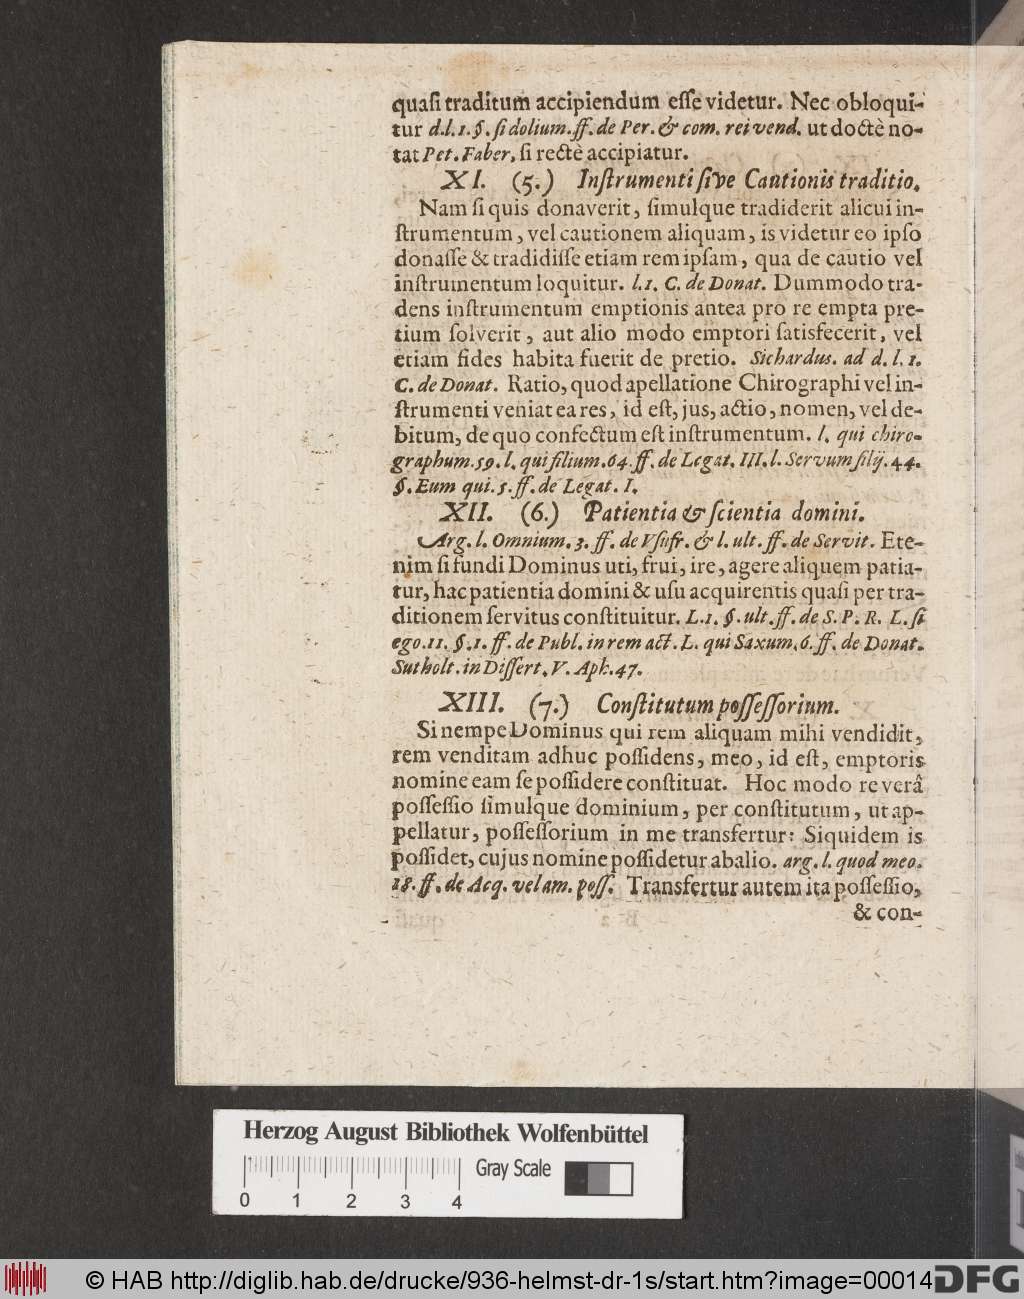 quaſi traditum accipiendum eſſe videtur. Nec obloqui-
tur d.l.1.§. ſi dolium. ff. de Per. & com. rei vend. ut doctè no-
tat Pet. Faber, ſi rectè accipiatur.
XI. (5.) Inſtrumenti ſive Cautionis traditio.
Nam ſi quis donaverit, ſimulque tradiderit alicui in-
ſtrumentum, vel cautionem aliquam, is videtur eo ipſo
donaſſe & tradidiſſe etiam rem ipſam, qua de cautio vel
inſtrumentum loquitur. l.1. C. de Donat. Dummodo tra-
dens inſtrumentum emptionis antea pro re empta pre-
tium ſolverit, aut alio modo emptori ſatisfecerit, vel
etiam fides habita fuerit de pretio. Sichardus. ad d. l. 1.
C. de Donat. Ratio, quod apellatione Chirographi vel in-
ſtrumenti veniat ea res, id eſt, jus, actio, nomen, vel de-
bitum, de quo confectum eſt inſtrumentum. l. qui chiro-
graphum. 59. l. qui filium. 64. ff. de Legat. III. l. Servum filij. 44.
§. Eum qui. 5. ff. de Legat. I.
XII. (6.) Patientia & ſcientia domini.
Arg. l. Omnium. 3. ff. de Vſufr. & l. ult. ff. de Servit. Ete-
nim ſi fundi Dominus uti, frui, ire, agere aliquem patia-
tur, hac patientia domini & uſu acquirentis quaſi per tra-
ditionem ſervitus conſtituitur. L.1. §. ult. ff. de S. P. R. L. ſi
ego. 11. §.1. ff. de Publ. in rem act. L. qui Saxum. 6. ff. de Donat.
Sutholt. in Diſſert. V. Aph. 47.
XIII. (7.) Conſtitutum poſſeſſorium.
Si nempe Dominus qui rem aliquam mihi vendidit,
rem venditam adhuc poſſidens, meo, id eſt, emptoris
nomine eam ſe poſſidere conſtituat. Hoc modo re verâ
poſſeſſio ſimulque dominium, per conſtitutum, ut ap-
pellatur, poſſeſſorium in me transfertur: Siquidem is
poſſidet, cujus nomine poſſidetur ab alio. arg. l. quod meo.
18. ff. de Acq. vel am. poſſ. Transfertur autem ita poſſeſſio,
& con-
Herzog August Bibliothek Wolfenbüttel
Gray Scale
0 1 2 3 4
© HAB http://diglib.hab.de/drucke/936-helmst-dr-1s/start.htm?image=00014
DFG